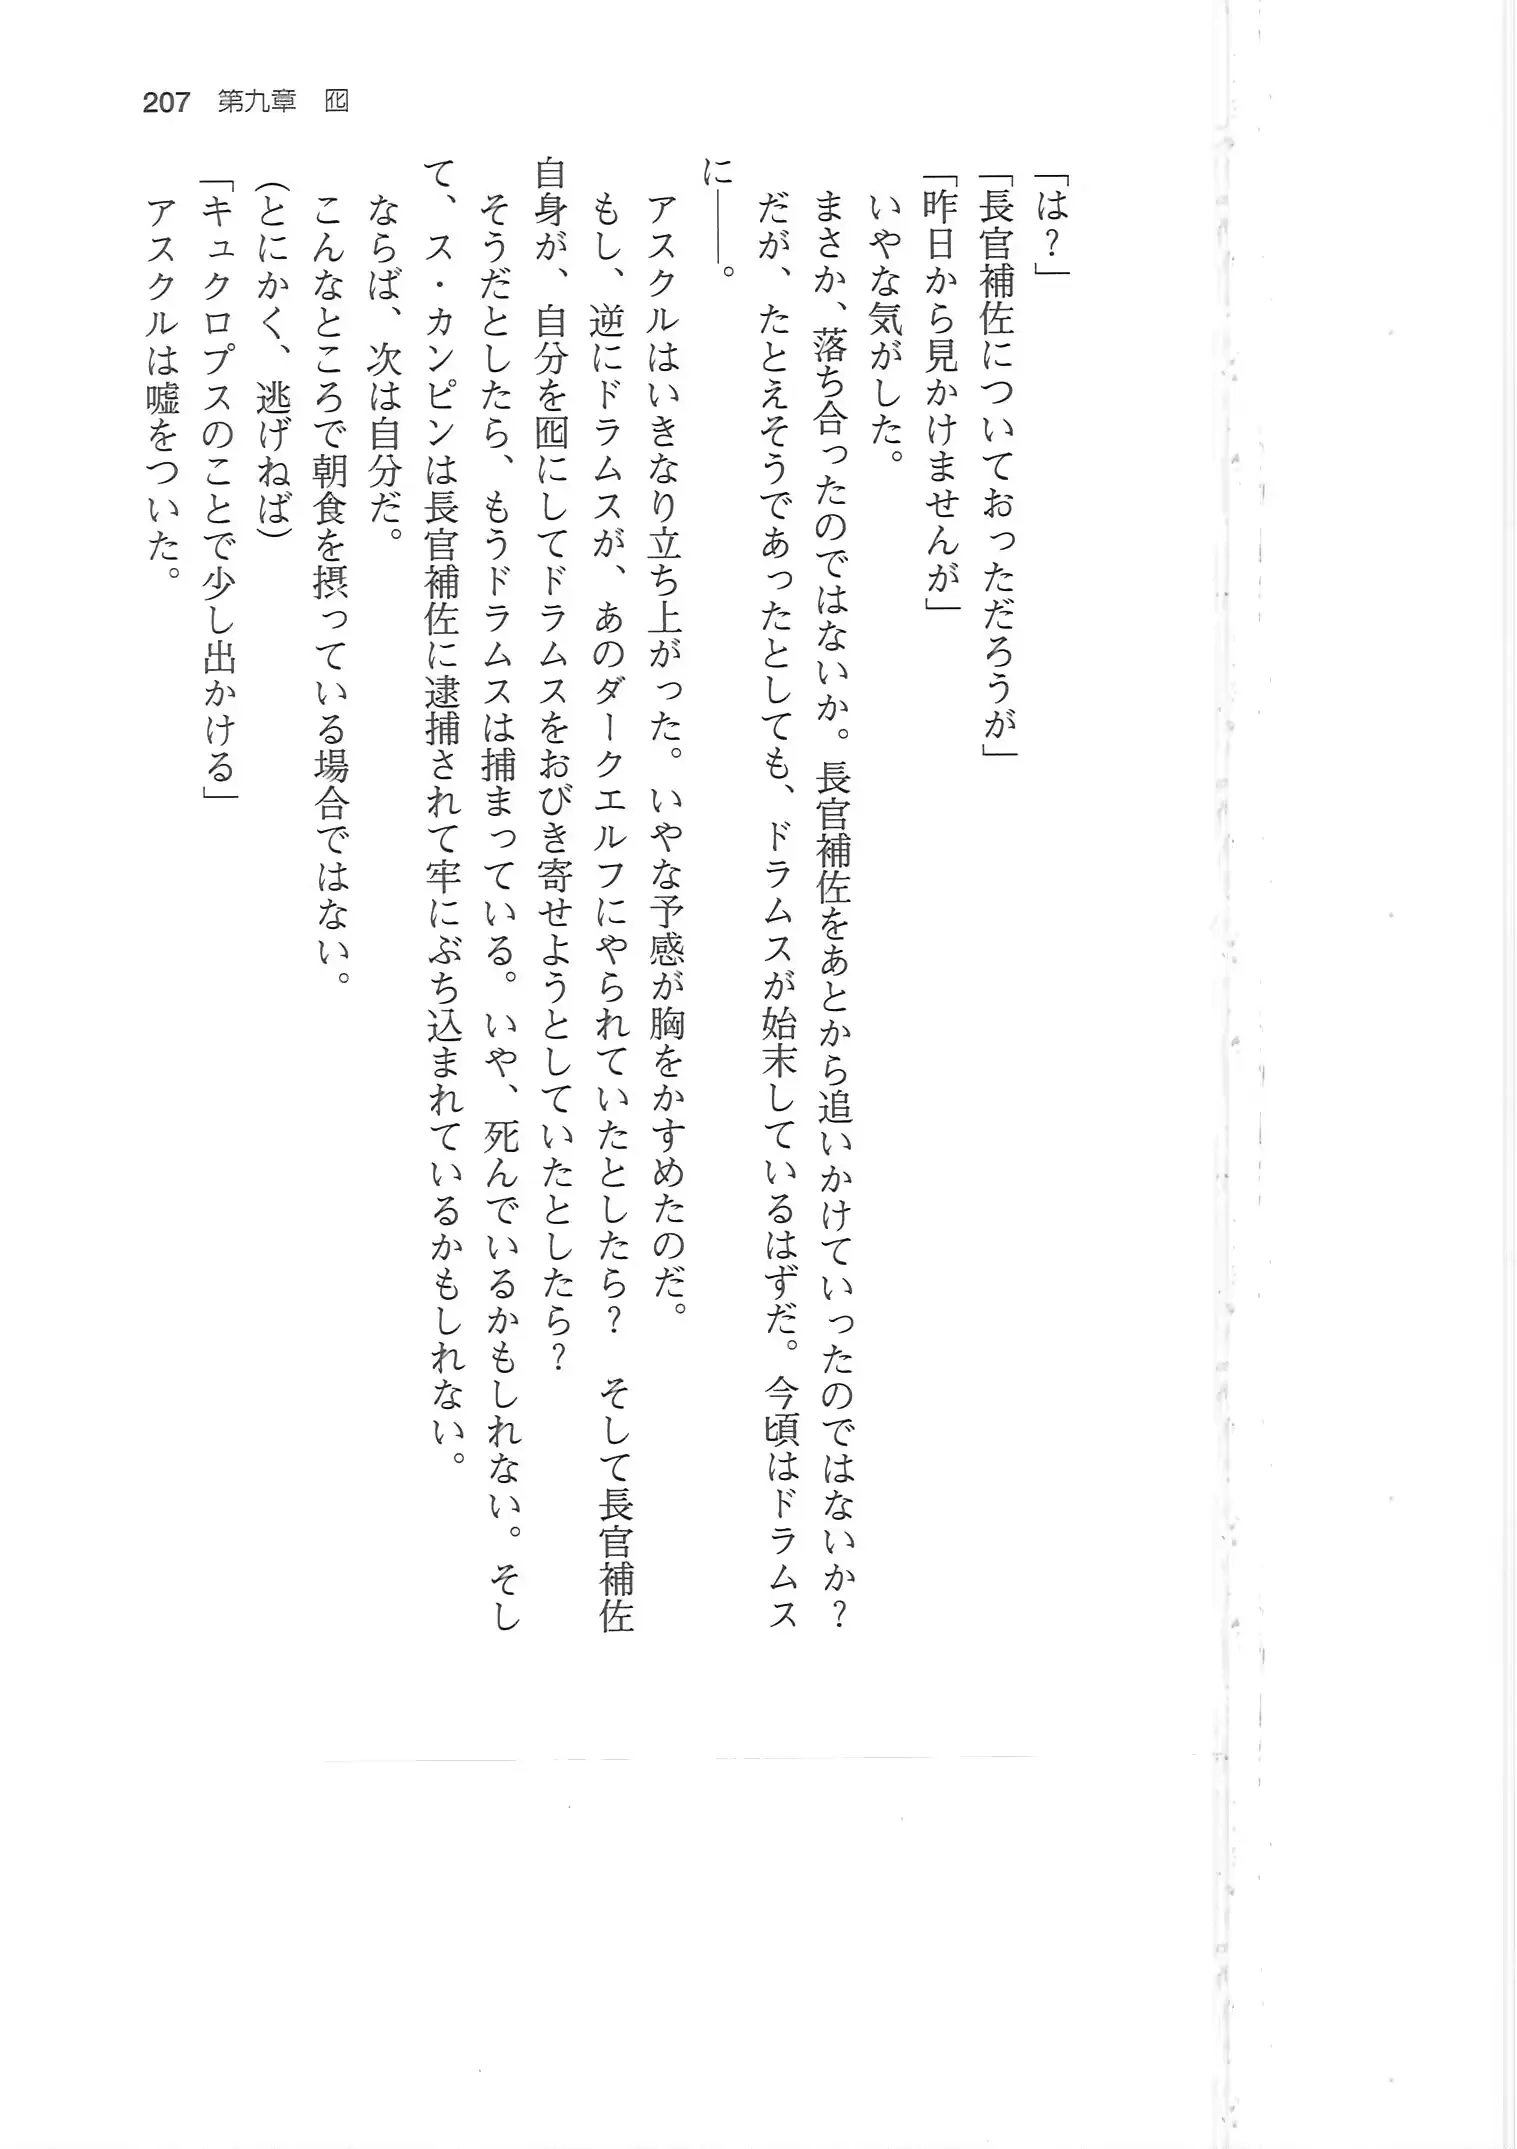 207 第九章 囮
「は？」
「長官補佐についておっただろうが」
「昨日から見かけませんが」
いやな気がした。
まさか、落ち合ったのではないか。長官補佐をあとから追いかけていったのではないか？
だが、たとえそうであったとしても、ドラムスが始末しているはずだ。今頃はドラムス
に――。
アスクルはいきなり立ち上がった。いやな予感が胸をかすめたのだ。
もし、逆にドラムスが、あのダークエルフにやられていたとしたら？　そして長官補佐
自身が、自分を囮にしてドラムスをおびき寄せようとしていたとしたら？
そうだとしたら、もうドラムスは捕まっている。いや、死んでいるかもしれない。そし
て、ス・カンピンは長官補佐に逮捕されて牢にぶち込まれているかもしれない。
ならば、次は自分だ。
こんなところで朝食を摂っている場合ではない。
（とにかく、逃げねば）
「キュクロプスのことで少し出かける」
アスクルは嘘をついた。